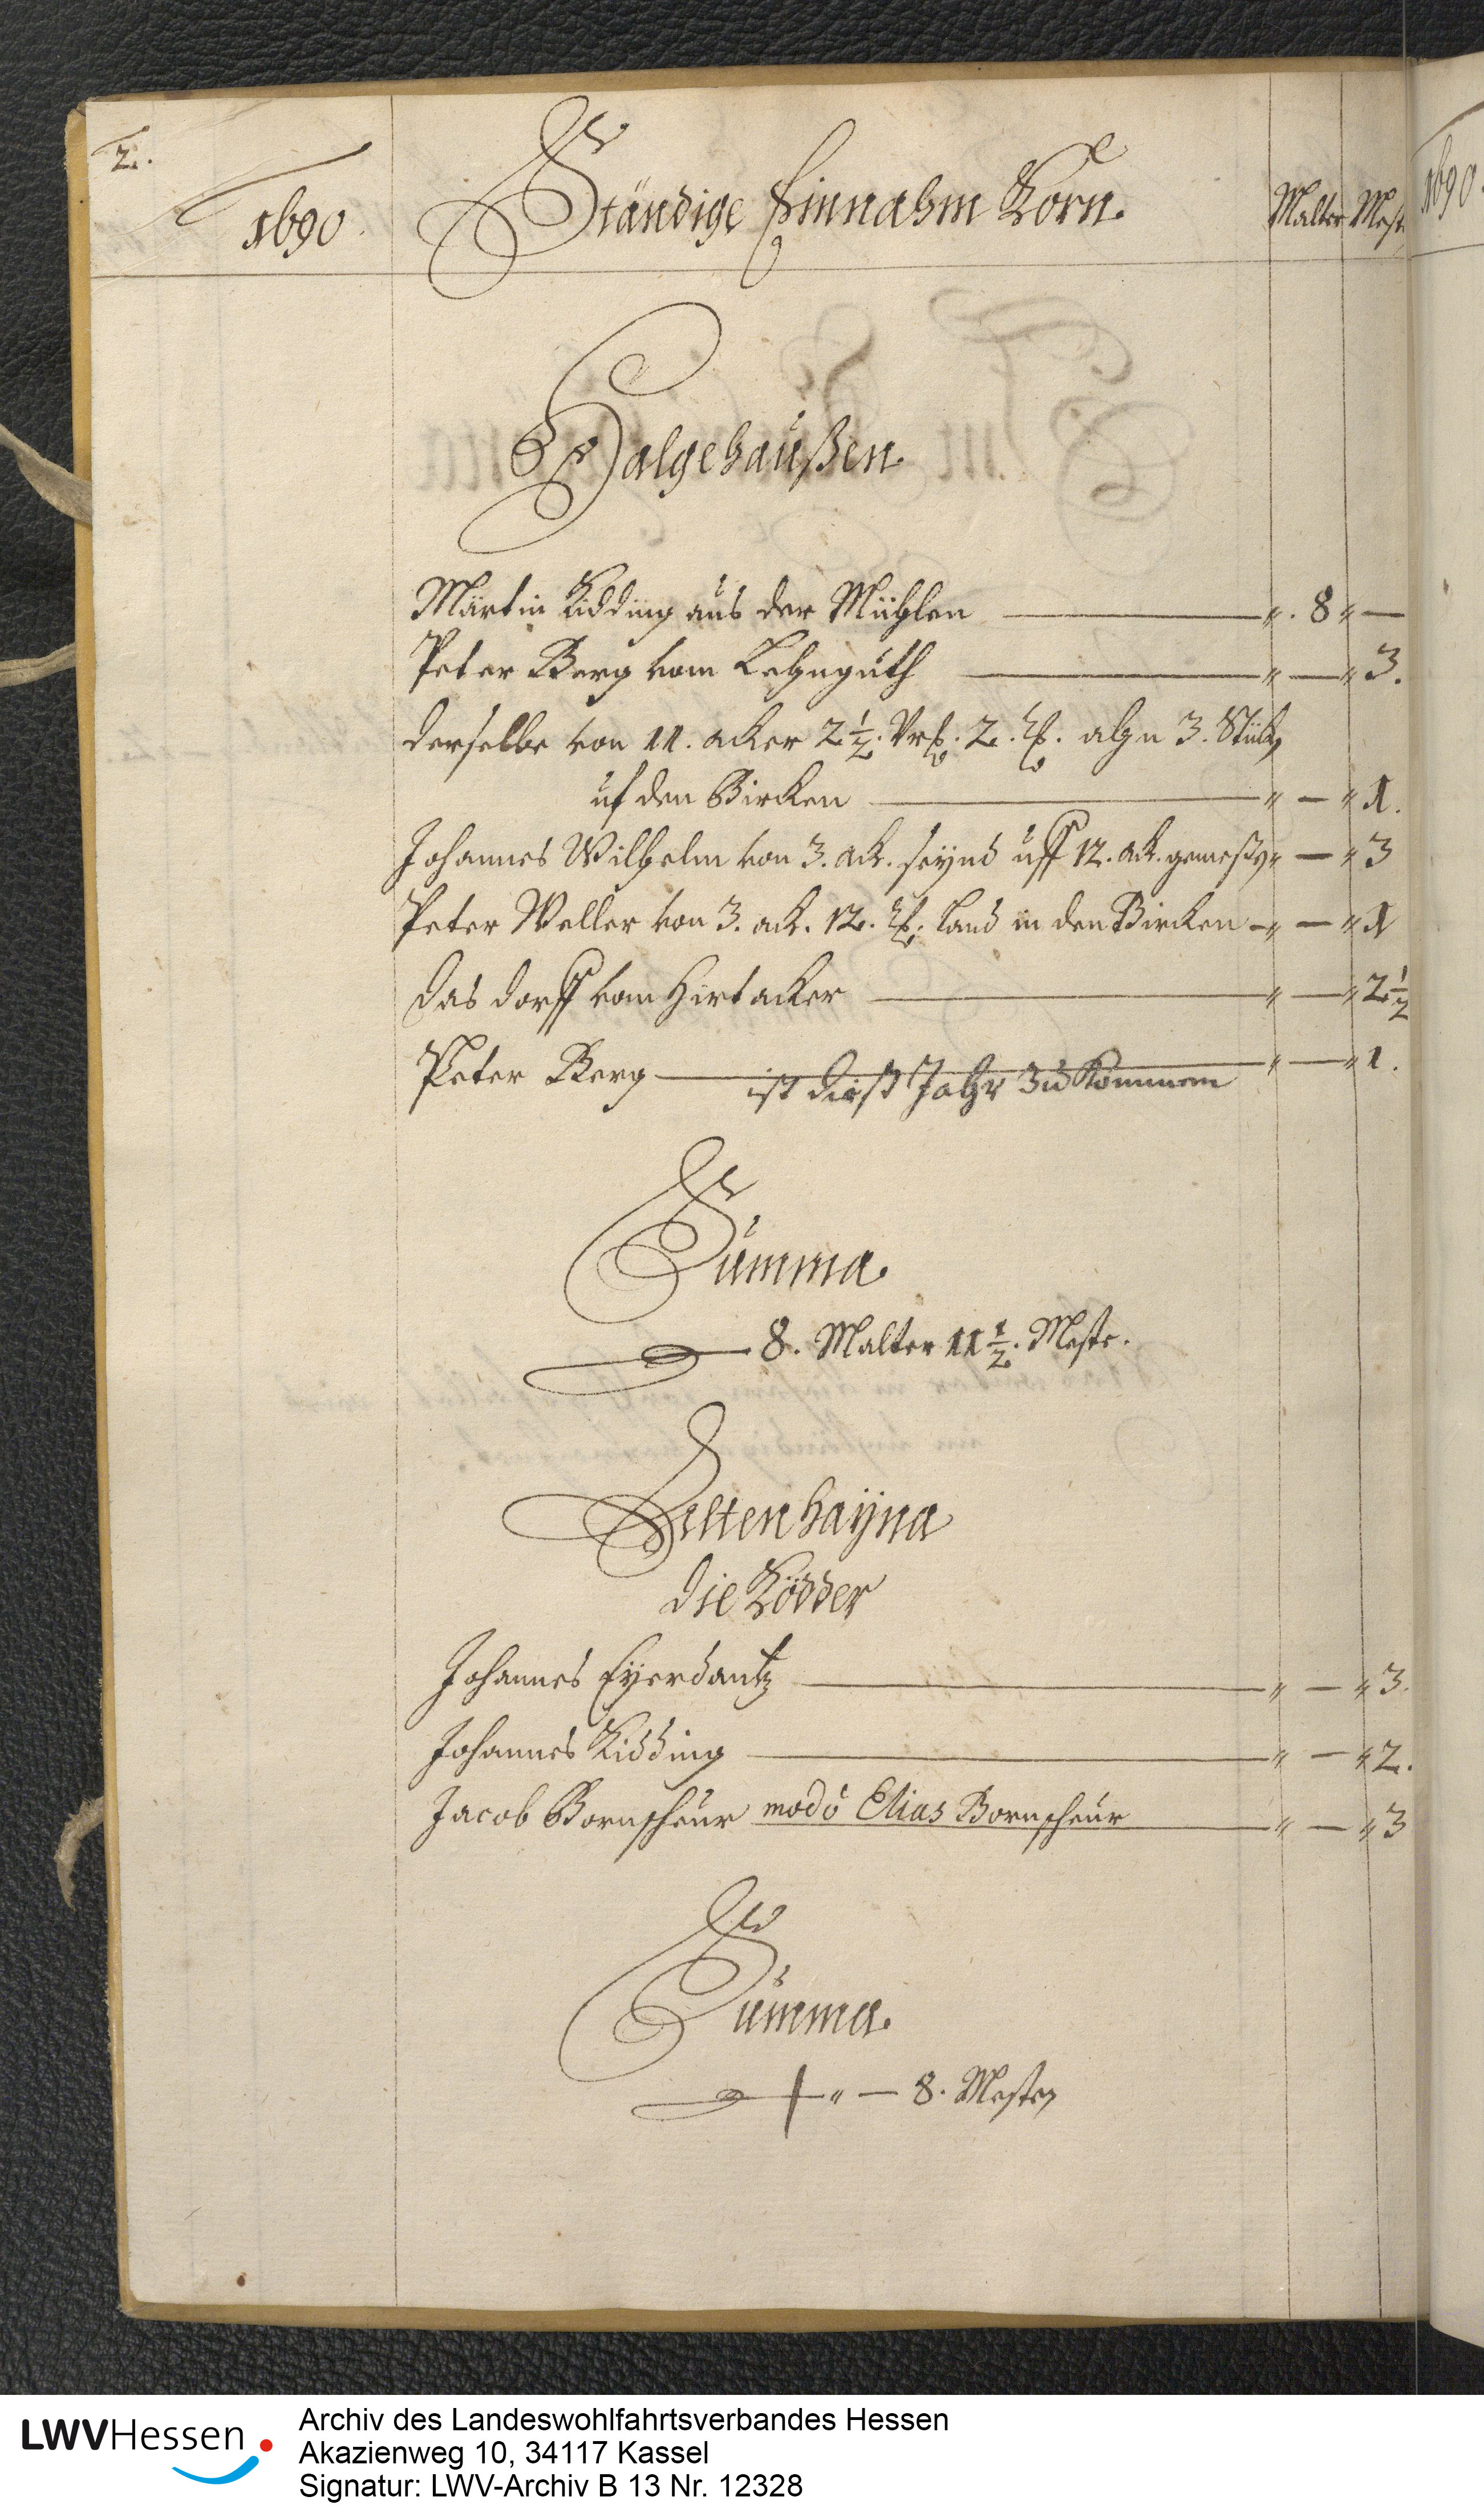 2.
1690.
Ständige Einnahm Korn.
Malter Mest
1690
Halgehaußen
Märtin Ridding aus der Mühlen — „. 8 „ —
Peter Berg vom Lehnguth — „ — „ 3.
derselbe von 11. acker 2 1/2. Vrtl. 2. alß in 3. Stück
uf den Bircken — „ — „ 1.
Johannes Wilhelm von 3. ack. seynd uff 12. ack. gemeßen „ — „ 3
Peter Weller von 3. ack. 12. Land in den Bircken — „ — „ 1
das dorff vom Hirtacker — „ — „ 2 1/2
Peter Berg — ist dieß Jahr zu Kommen „ — „ 1.
Summa
8. Malter 11 1/2. Meste.
Altenhayna
die Rödder
Johannes Eyerdantz — „ — „ 3.
Johannes Ridding — „ — „ 2.
Jacob Bornscheur modo Elias Bornscheur „ — „ 3
Summa
„ — 8. Mesten
LWVHessen
Archiv des Landeswohlfahrtsverbandes Hessen
Akazienweg 10, 34117 Kassel
Signatur: LWV-Archiv B 13 Nr. 12328